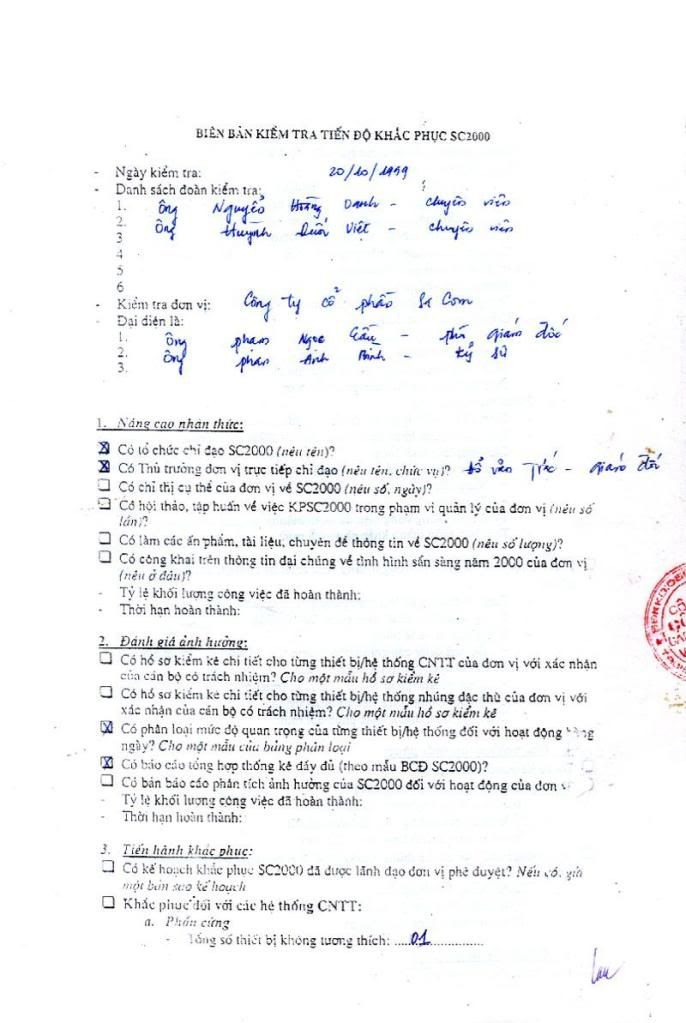 BIÊN BẢN KIỂM TRA TIẾN ĐỘ KHẮC PHỤC SC2000
- Ngày kiểm tra: 20/10/1999
- Danh sách đoàn kiểm tra:
1. Ông Nguyễn Hoàng Danh - chuyên viên
2. Ông Huỳnh Quốc Việt - chuyên viên
3
4
5
6
- Kiểm tra đơn vị: Công ty cổ phần Se Com
- Đại diện là:
1. Ông Phạm Ngọc - phó giám đốc
2. Ông Phan Anh - kỹ sư
3.
1. Nâng cao nhận thức:
☒ Có tổ chức chỉ đạo SC2000 (nêu tên)?
☒ Có Thủ trưởng đơn vị trực tiếp chỉ đạo (nêu tên, chức vụ)? văn - giám đốc
☐ Có chỉ thị cụ thể của đơn vị về SC2000 (nêu số, ngày)?
☐ Có hội thảo, tập huấn về việc KPSC2000 trong phạm vi quản lý của đơn vị (nêu số
lần)?
☐ Có làm các ấn phẩm, tài liệu, chuyên đề thông tin về SC2000 (nêu số lượng)?
☐ Có công khai trên thông tin đại chúng về tình hình sẵn sàng năm 2000 của đơn vị
(nêu ở đâu)?
- Tỷ lệ khối lượng công việc đã hoàn thành:
- Thời hạn hoàn thành:
2. Đánh giá ảnh hưởng:
☐ Có hồ sơ kiểm kê chi tiết cho từng thiết bị/hệ thống CNTT của đơn vị với xác nhận
của cán bộ có trách nhiệm? Cho một mẫu hồ sơ kiểm kê
☐ Có hồ sơ kiểm kê chi tiết cho từng thiết bị/hệ thống nhúng đặc thù của đơn vị với
xác nhận của cán bộ có trách nhiệm? Cho một mẫu hồ sơ kiểm kê
☒ Có phân loại mức độ quan trọng của từng thiết bị/hệ thống đối với hoạt động hàng
ngày? Cho một mẫu của bảng phân loại
☒ Có báo cáo tổng hợp thống kê đầy đủ (theo mẫu BCĐ SC2000)?
☐ Có bản báo cáo phân tích ảnh hưởng của SC2000 đối với hoạt động của đơn
- Tỷ lệ khối lượng công việc đã hoàn thành:
- Thời hạn hoàn thành:
3. Tiến hành khắc phục:
☐ Có kế hoạch khắc phục SC2000 đã được lãnh đạo đơn vị phê duyệt? Nếu có, gửi
một bản sao kế hoạch
☐ Khắc phục đối với các hệ thống CNTT:
a. Phần cứng
- Tổng số thiết bị không tương thích: .....01..................